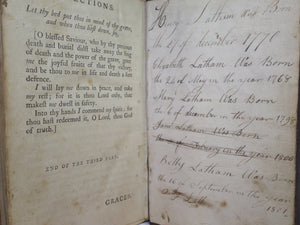 ECTIONS.
Let thy bed put thee in mind of thy grave,
and when thou liest down, say,
[O blessed Saviour, who by thy precious
death and burial didst take away the sting
of death and the power of the grave, grant
me the joyful fruits of that thy victory,
and be thou to me in life and death a last
defence.
I will lay me down in peace, and take
my rest; for it is thou Lord only, that
makest me dwell in safety.
Into thy hands I commend my spirit; for
thou hast redeemed it, O Lord, thou God
of truth.]
END OF THE THIRD PART.
GRACES.
Latham was Born
the of december 1770
Elizabeth Latham Was Born
the 22d of May in the year 1768
Mary Latham Was Born
the 6 of december in the year 1798
Latham Was Born
the of in the year 1800
Betty Latham Was Born
the of September in the year
1801